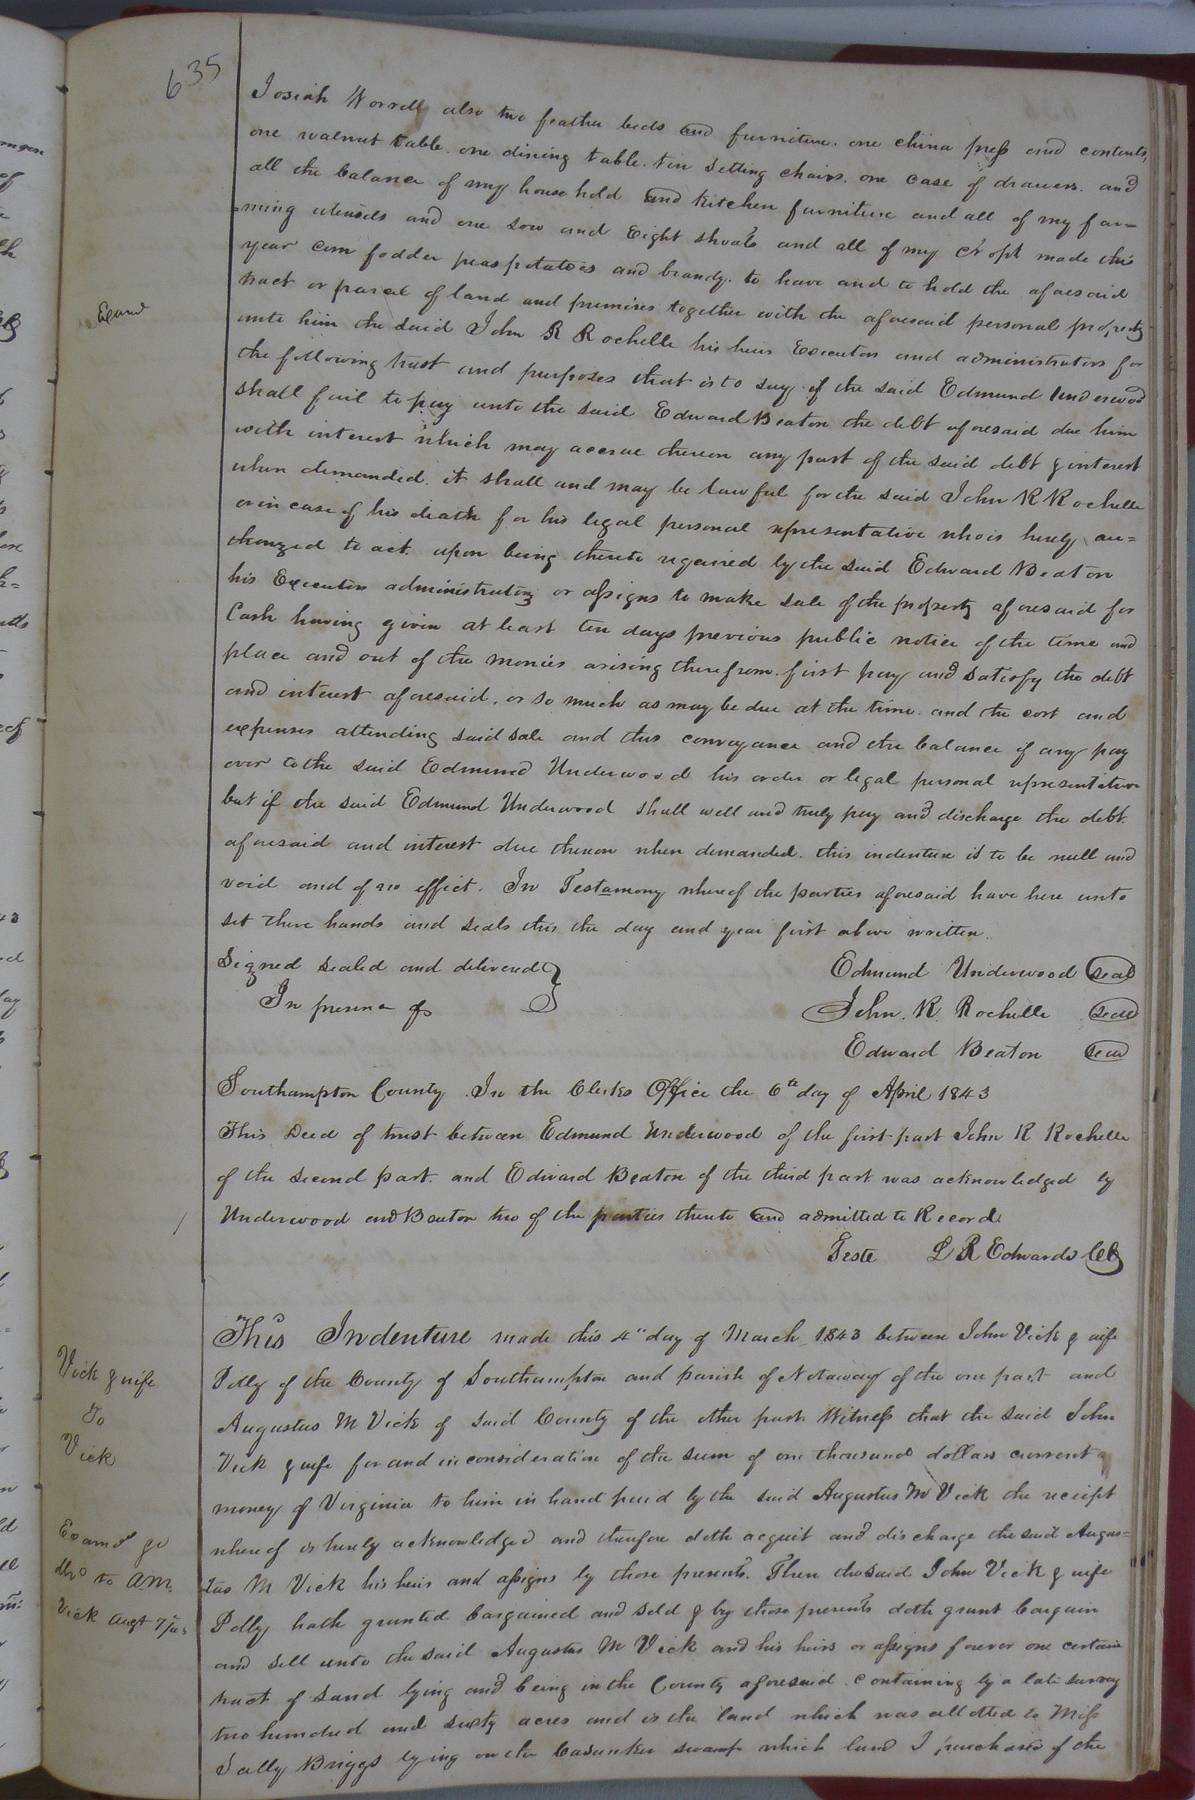 635
Josiah Worrell also two feather beds and furniture. one china press and contents,
one walnut table. one dining table. ten setting chairs. one case of drawers. and
all the balance of my house hold and kitchen furniture and all of my far=
ming utensels and one sow and Eight shoats and all of my cropt made this
year corn fodder peas potatoes and brandy. to have and to hold the aforesaid
Examd
tract or parcel of land and premises together with the aforesaid personal property
unto him the said John R Rochelle his heirs Executors and administrators for
the following trust and purposes that is to say. if the said Edmund Underwood
shall fail to pay unto the said Edward Beaton the debt aforesaid due him
with interest which may accrue thereon any part of the said debt & interest
when demanded. it shall and may be lawful for the said John R Rochelle
or in case of his death for his legal personal representative who is hereby au=
thorized to act upon being thereto required by the said Edward Beaton
his Executors administrators or assigns to make sale of the property aforesaid for
Cash having given at least ten days previous public notice of the time and
place and out of the monies arising therefrom. first pay and satisfy the debt
and interest aforesaid, or so much as may be due at the time. and the cost and
expenses attending said sale and this conveyance and the balance if any pay
over to the said Edmund Underwood his order or legal personal representative
but if the said Edmund Underwood shall well and truly pay and discharge the debt
aforesaid and interest due thereon when demanded. this indenture is to be null and
void and of no effect. In Testamony whereof the parties aforesaid have here unto
set there hands and seals this the day and year first above written.
Signed sealed and delivered } Edmund Underwood seal
In presence of John. R. Rochelle seal
Edward Beaton seal
Southampton County. In the Clerks Office the 6th day of April 1843
This Deed of trust between Edmund Underwood of the first part John R Rochelle
of the second part. and Edward Beaton of the third part was acknowledged by
Underwood and Beaton two of the parties thereto and admitted to Record
Teste L R Edwards CC
This Indenture made this 4" day of March 1843 between John Vick & wife
Vick & wife
To
Vick
Polly of the County of Southampton and parish of Notaway of the one part and
Augustus M Vick of said County of the other part. Witness that the said John
Vick & wife for and in consideration of the sum of one thousand dollars current
money of Virginia to him in hand paid by the said Augustus M Vick the receipt
Examd
to A M.
Vick Augt
whereof is hereby acknowledged and therefore doth acquit and discharge the said Augus=
tus M Vick his heirs and assigns by those presents. Then the said John Vick & wife
Polly hath granted bargained and sold & by those presents doth grant bargain
and sell unto the said Augustus M Vick and his heirs or assigns forever one certain
tract of Land lying and being in the County aforesaid. containing by a late survey
two hundred and sixty acres and is the land which was allotted to Miss
Sally Briggs lying on the swamp which land I purchased of the